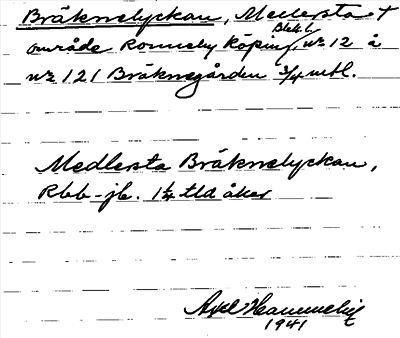 Bräknelyckan, Medlersta +
Blek.l.
område Ronneby köping, nr 12 å
nr 121 Bräknegården 3/4 mtl.
Medlersta Bräknelyckan,
Rbb-jb. 1 1/4 tld åker
Axel Hammelin
1941